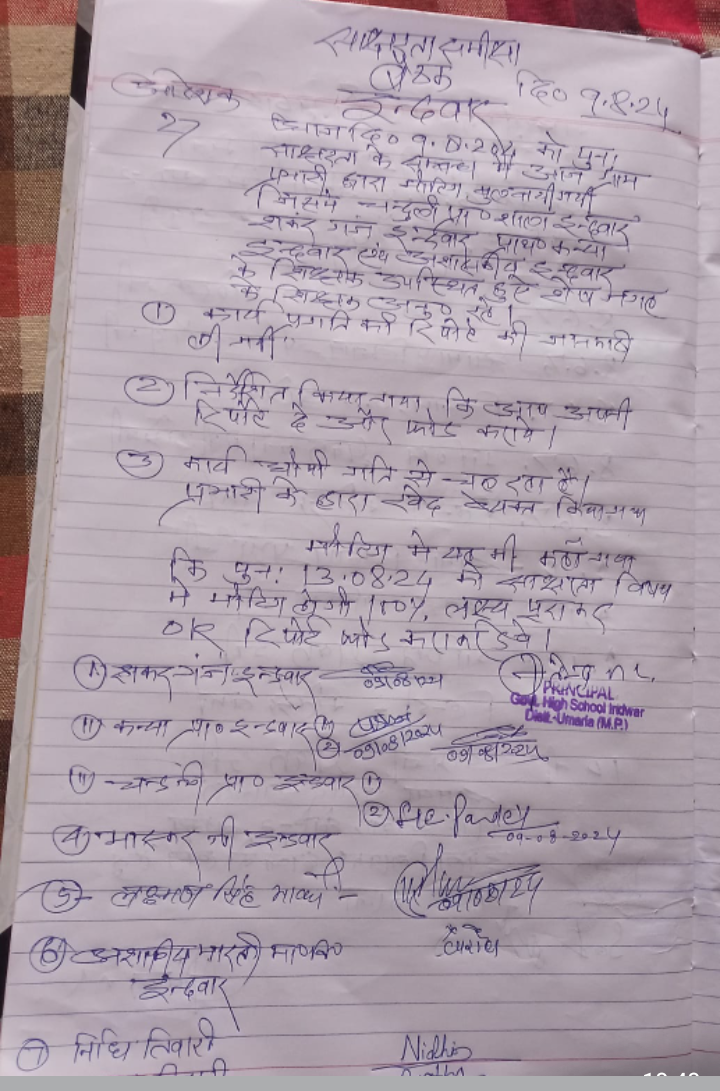 साक्षरता समीक्षा
बैठक
इन्दवार दि० 9.8.24
आज दि० 9.8.2024 को पुनः
साक्षरता के सम्बन्ध में आज ग्राम
प्रभारी द्वारा मीटिंग बुलायी गयी
जिसमें चन्दुली प्रा० शाला इन्दवार
शंकर गंज इन्दवार प्राथ० कन्या
इन्दवार एवं अशासकीय इन्दवार
के शिक्षक उपस्थित हुए शेष
के शिक्षक अनु० रहे।
① कार्य प्रगति की रिपोर्ट की जानकारी
ली गयी
② निर्देशित किया गया कि आप अपनी
रिपोर्ट दे और फीड करावें।
③ कार्य धीमी गति से चल रहा है।
प्रभारी के द्वारा खेद व्यक्त किया गया
मीटिंग में यह भी कहाँ गया
कि पुनः 13.08.24 को साक्षरता विषय
में मीटिंग होगी 100% लक्ष्य पूरा कर
OK रिपोर्ट फीड करा
① शंकर गंज इन्दवार 09/08/24
PRINCIPAL
Govt. High School Indwar
Distt.-Umaria (M.P.)
⑪ कन्या प्रा० इन्दवार ①
② 09/08/2024 09/08/2024
⑪ चन्दुली प्रा० इन्दवार ①
② Pandey
09-08-2024
④ इन्दवार
⑤ लक्ष्मण सिंह मार्को - 09/08/24
⑥ अशासकीय भारती
इन्दवार
⑦ निधि तिवारी Nidhi